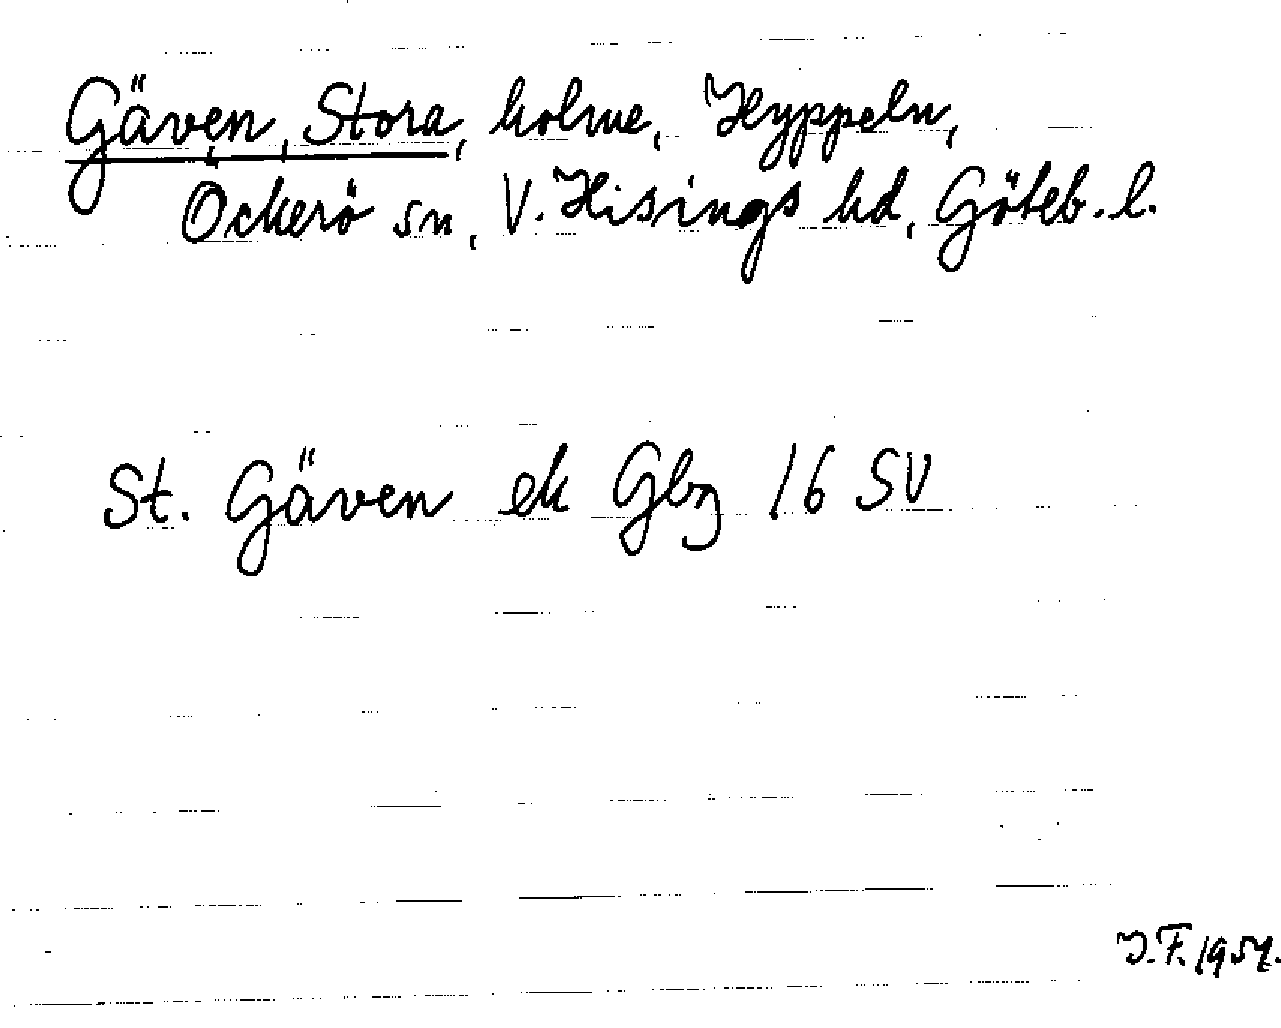 Gäven, Stora, holme, Hyppeln,
Öckerö sn, V. Hisings hd, Göteb. l.
St. Gäven ek Gbg 16 SV
J.F. 1957.